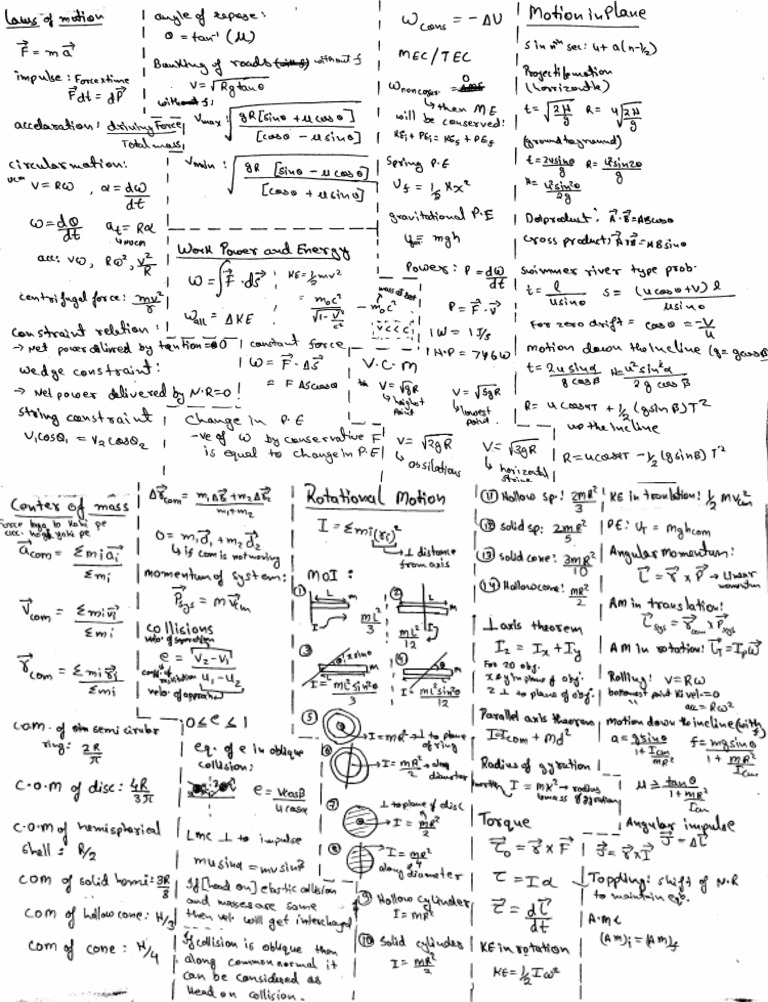 Laws of motion
F⃗ = ma⃗
impulse : Force x time
F⃗dt = dP⃗
accelaration : driving Force / Total mass
circular motion:
V = Rω , α = dω/dt
ω = dθ/dt
a_t = Rα
acc: vω, Rω², v²/R
centrifugal force: mv²/r
constraint relation:
→ Net power delivered by tention = 0
wedge constraint:
→ Net power delivered by N.R = 0
string constraint
V₁cosθ₁ = V₂cosθ₂
angle of repose:
θ = tan⁻¹ (μ)
Banking of roads without f
V = √Rg tanθ
V max: √ gR[sinθ + μcosθ] / [cosθ - μsinθ]
V min: √ gR [sinθ - μcosθ] / [cosθ + μsinθ]
Work Power and Energy
ω = ∫F⃗ · ds⃗
KE = ½mv²
= m₀c² / √1 - v²/c² - m₀c²
v<<c
ω all = ΔKE
constant force
ω = F⃗ · Δs⃗
= F Δs cosθ
Change in P.E
-ve of ω by conservative F
is equal to change in P.E
ω cons = -ΔU
MEC/TEC
ω noncons = 0
↳ then ME
will be conserved:
KEi + PEi = KEf + PEf
Spring P.E
U_f = ½ Kx²
gravitational P.E
mgh
Power: P = dω/dt
P = F⃗ · v⃗
1W = 1 J/s
1 H.P = 746W
V.C.M
V = √gR
↳ highest point
V = √5gR
↳ lowest point
V = √2gR
↳ ossilations
V = √3gR
↳ horizontal
Motion in Plane
S in nth sec: u + a(n-½)
Projectile motion
(horrizontle)
t = √2H/g R = u√2H/g
(ground to ground)
t = 2u sinθ/g R = u² sin2θ/g
H = u² sin²θ/2g
Dot product: A⃗·B⃗ = AB cosθ
cross product: A⃗×B⃗ = AB sinθ
swimmer river type prob.
t = l/u sinθ s = (u cosθ + v) l / u sinθ
For zero drift = cosθ = -v/u
motion down the incline (g = g cosβ)
t = 2u sinα / g cosβ H = u² sin²α / 2g cosβ
R = u cosαT + ½ (g sinβ) T²
up the incline
R = u cosαT - ½ (g sinβ) T²
Center of mass
a⃗com = Σmiai⃗ / Σmi
V⃗com = Σmivi⃗ / Σmi
r⃗com = Σmiri⃗ / Σmi
com. of semi circular
ring: 2R/π
C.O.M of disc: 4R/3π
C.O.M of hemispherical
shell: R/2
COM of solid hemi: 3R/8
COM of hollow cone: H/3
COM of cone: H/4
Δr⃗com = m₁Δr⃗₁ + m₂Δr⃗₂ / m₁+m₂
0 = m₁d⃗₁ + m₂d⃗₂
↳ if com is not moving
momentum of system:
P⃗sys = mv⃗cm
collisions
velo. of seperation
e = V₂ - V₁ / u₁ - u₂
velo. of approach
0 ≤ e ≤ 1
eq. of e in oblique
collision:
e = v cosβ / u cosα
LMC ⊥ to impulse
mu sinα = mv sinβ
If [head on] elastic collision
and masses are same
then vel. will get interchanged
If collision is oblique then
along common normal it
can be considered as
head on collision.
Rotational Motion
I = Σmi(ri)²
↳ ⊥ distance
from axis
MOI:
① L m I mL²/3
② L m I mL²/12
③ I = mL² sin²θ / 3
④ I = mL² sin²θ / 12
⑤ → I = mR² → ⊥ to plane
of ring
⑥ → I = mR²/2 → along
diameter
⑦ ⊥ to plane of disc
→ I = mR²/2
⑧ → I = mR²/4
along diameter
⑨ Hollow cylinder
I = mR²
⑩ Solid cylinder
I = mR²/2
⑪ Hollow sp: 2mR²/3
⑫ solid sp: 2mR²/5
⑬ solid cone: 3mR²/10
⑭ Hollow cone: mR²/2
⊥ axis theorem
Iz = Ix + Iy
For 2D obj.
x & y in plane of obj.
z ⊥ to plane of obj.
Parallel axis theorem
I = Icom + Md²
Radius of gyration
I = mK² → radius
of gyration
Torque
τ⃗₀ = r⃗ × F⃗
τ = Iα
τ⃗ = dL⃗/dt
KE in rotation
KE = ½ Iω²
KE in translation: ½ mv²cm
PE: U_T = mghcom
Angular Momentum:
L⃗ = r⃗ × P⃗ → Linear
momentum
AM in translation:
L⃗sys = r⃗com × P⃗sys
AM in rotation:
Rolling: V = Rω
bottomost point is vel = 0
acc = Rω²
motion down the incline (with f)
a = g sinθ / 1 + Icm/mR² f = mg sinθ / 1 + mR²/Icm
μ ≥ tanθ / 1 + mR²/Icm
Angular impulse
J⃗ = r⃗ × I⃗ J⃗ = ΔL⃗
Toppling: shift of N.R
to maintain eqb.
A.M.C
(Am)i = (Am)f